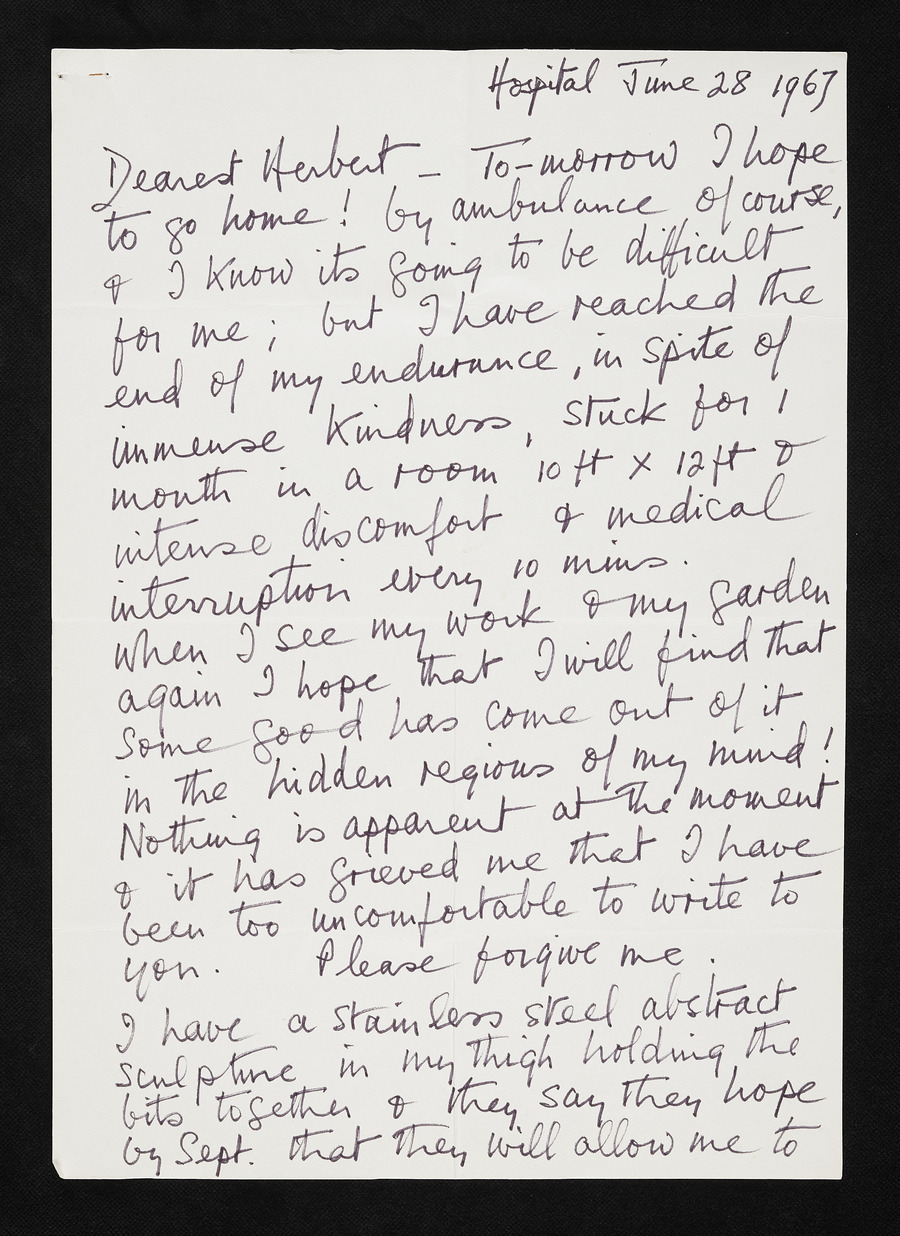 Hospital June 28 1967
Dearest Herbert – To-morrow I hope
to go home! by ambulance of course,
& I know its going to be difficult
for me; but I have reached the
end of my endurance, in spite of
immense kindness, stuck for 1
month in a room 10 ft x 12 ft &
intense discomfort & medical
interruption every 10 mins.
When I see my work & my garden
again I hope that I will find that
some good has come out of it
in the hidden regions of my mind!
Nothing is apparent at the moment
& it has grieved me that I have
been too uncomfortable to write to
you. Please forgive me.
I have a stainless steel abstract
sculpture in my thigh holding the
bits together & they say they hope
by Sept. that they will allow me to